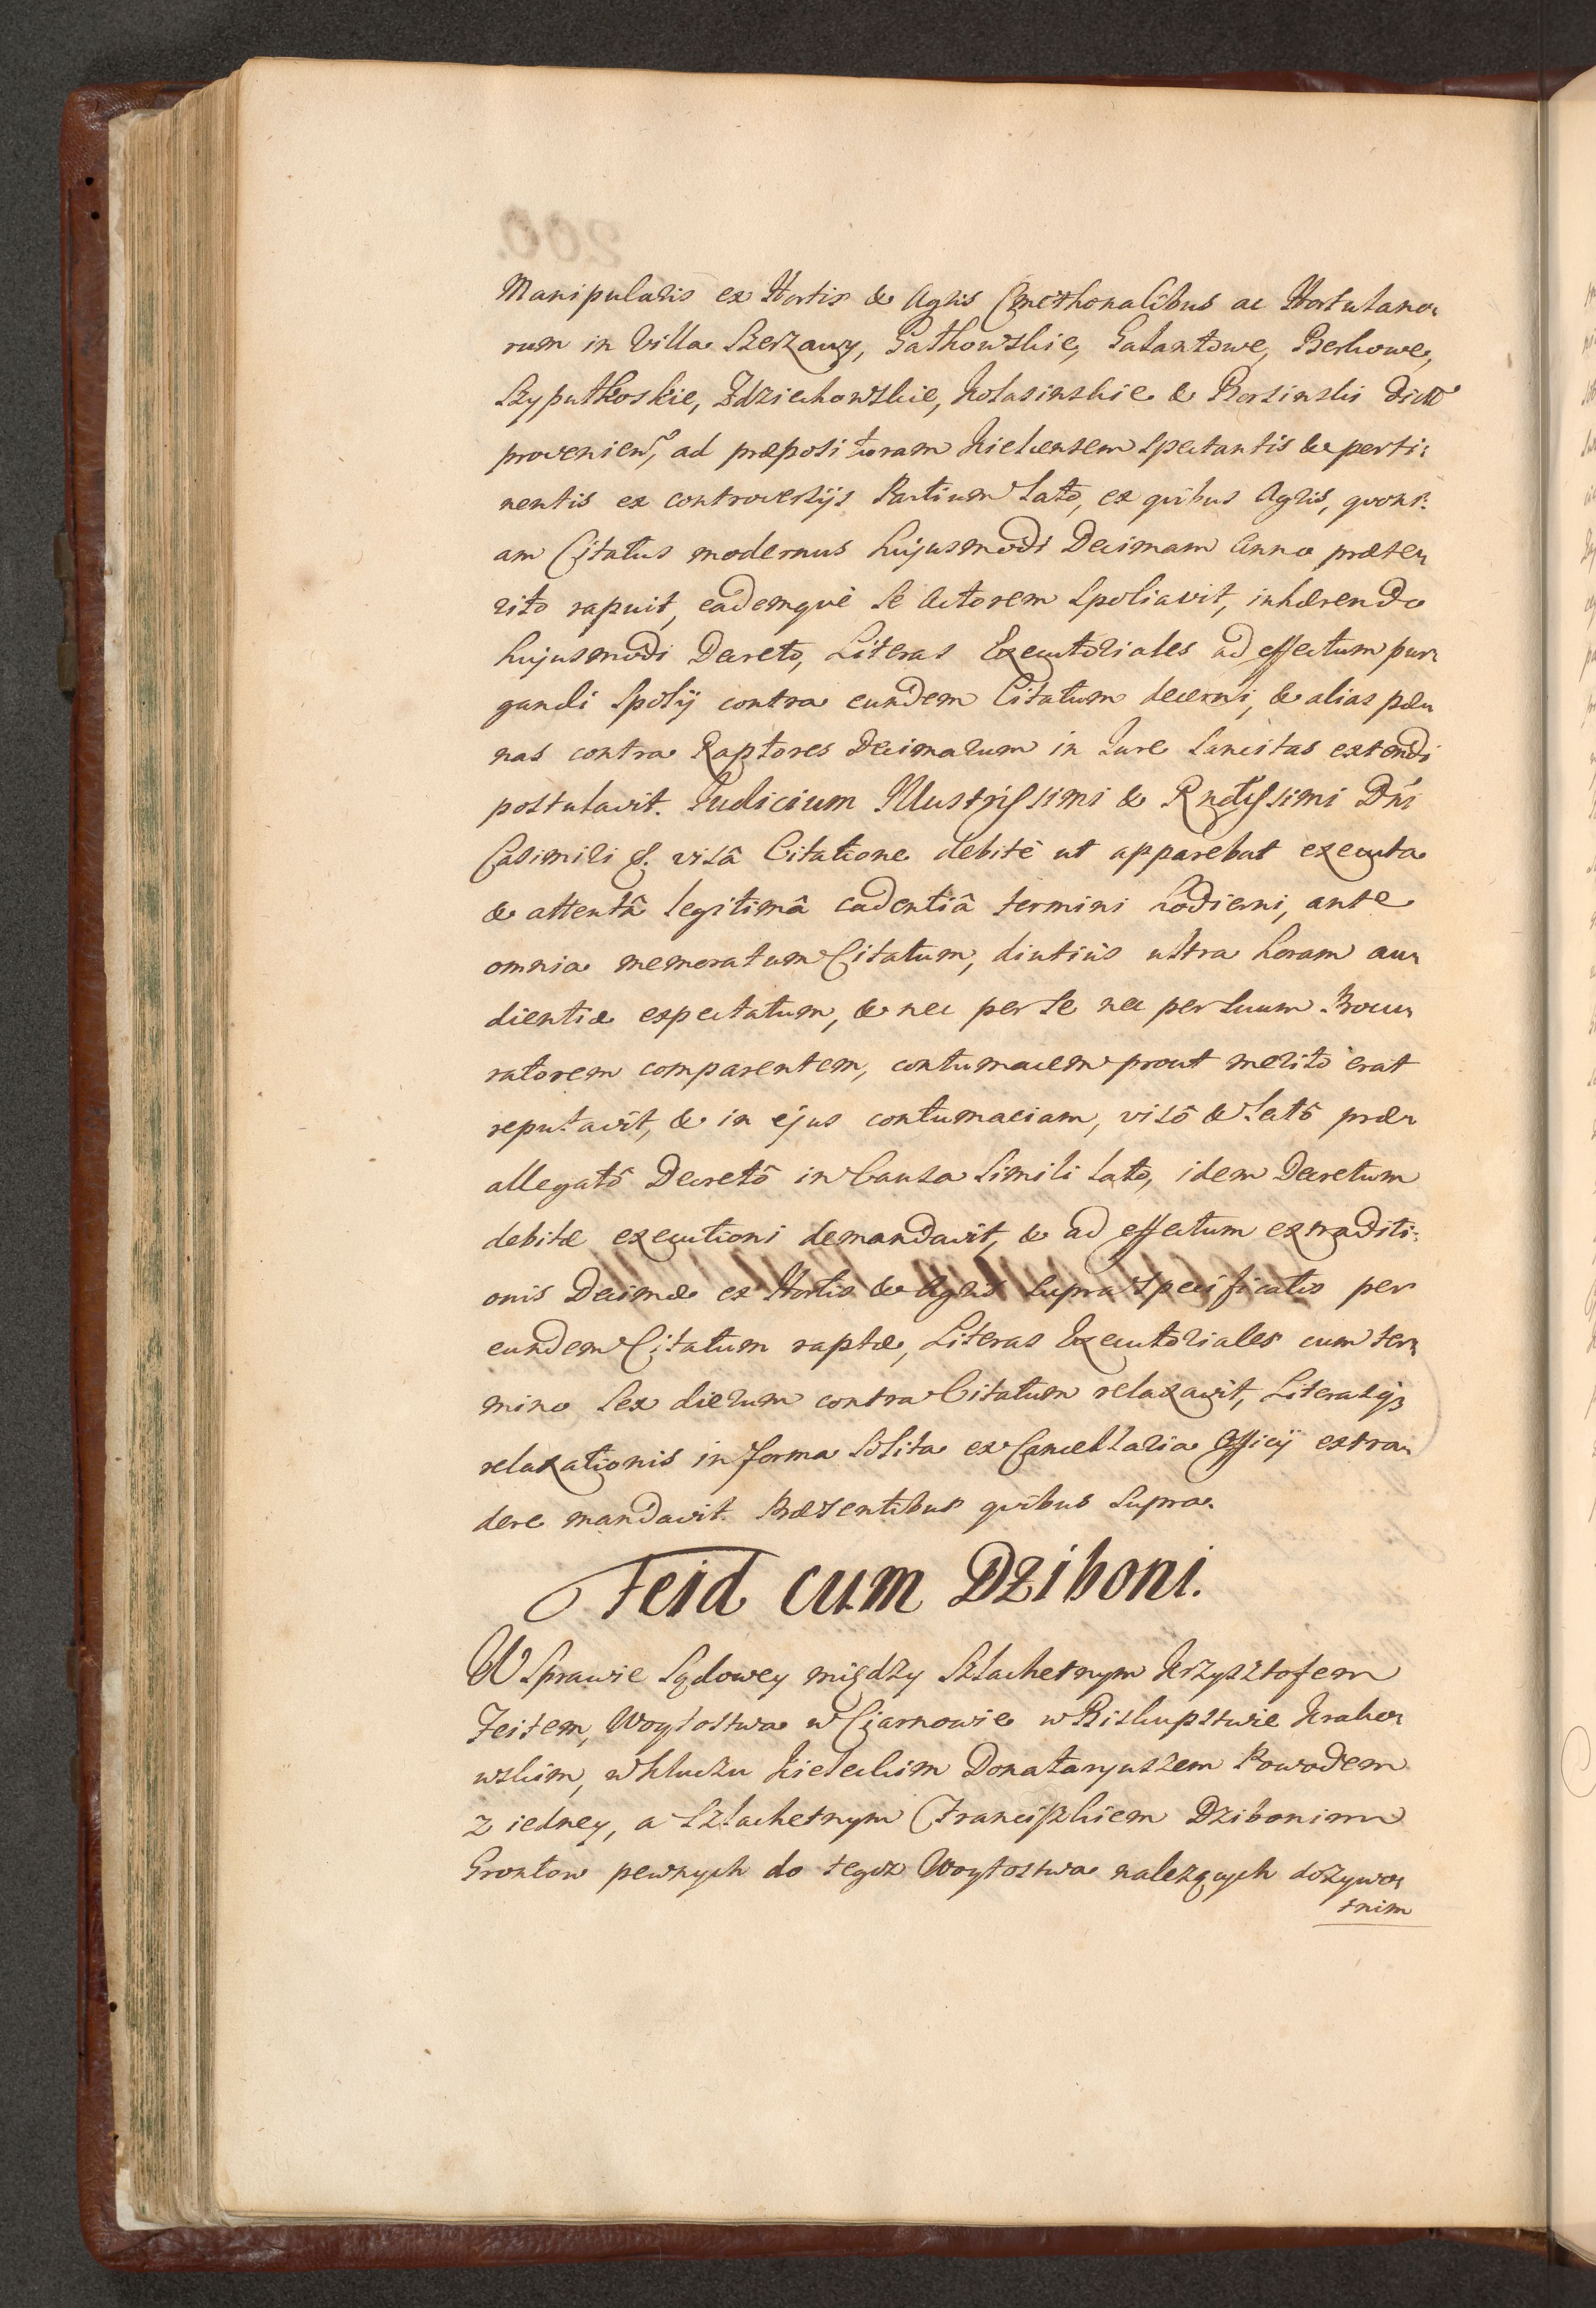 Manipularis ex Hortis & Agris Cmethonalibus ac Hortulano-
rum in Villa Szerzawy, Gathowskie, Galantowe, Berkowe,
Szyputkoskie, Zdziechowskie, Kolasinskie & Borsinski dictis
provenien, ad præposituram Kielcensem spectantis & perti:
nentis ex controversijs Partium lato, ex quibus Agris, quoni:
am Citatus modernus hujusmodi Decimam Anno præte-
rito rapuit, eademquè se Actorem spoliavit, inhærendo
hujusmodi Decreto, Literas Executoriales ad effectum pur-
gandi spolij contra eundem Citatum decerni, & alias pæ-
nas contra Raptores Decimarum in Jure sancitas extendi
postulavit. Judicium Illustrissimi & Rndissimi Dni
Casimiri &. visâ Citatione debitè ut apparebat executa
& attentâ legitimâ cadentiâ termini hodierni, ante
omnia memoratum Citatum, diutiùs ultra horam au-
dientiæ expectatum, & nec per se nec per suum Procu-
ratorem comparentem, contumacem prout merito erat
reputavit, & in ejus contumaciam, visô & lectô præ-
allegatô Decretô in Causa simili lato, idem Decretum
debitæ executioni demandavit, & ad effectum extraditi:
onis Decimæ ex Hortis & Agris supra specificatis per
eundem Citatum raptæ, Literas Executoriales cum ter-
mino sex dierum contra Citatum relaxavit, Literasq;
relaxationis in forma solita ex Cancellaria Officij extra-
dere mandavit. Præsentibus quibus supra.
Feid cum Dziboni.
W Sprawie Sądowey między Szlachetnym Krzysztofem
Feitem, Woytostwa w Czarnowie w Biskupstwie Krako-
wskim, w kluczu Kieleckim Donataryuszem Powodem
z iedney, a Szlachetnym Franciszkiem Dzibonim
Grontow pewnych do tegoz Woytostwa nalezących dozywo-
tnim